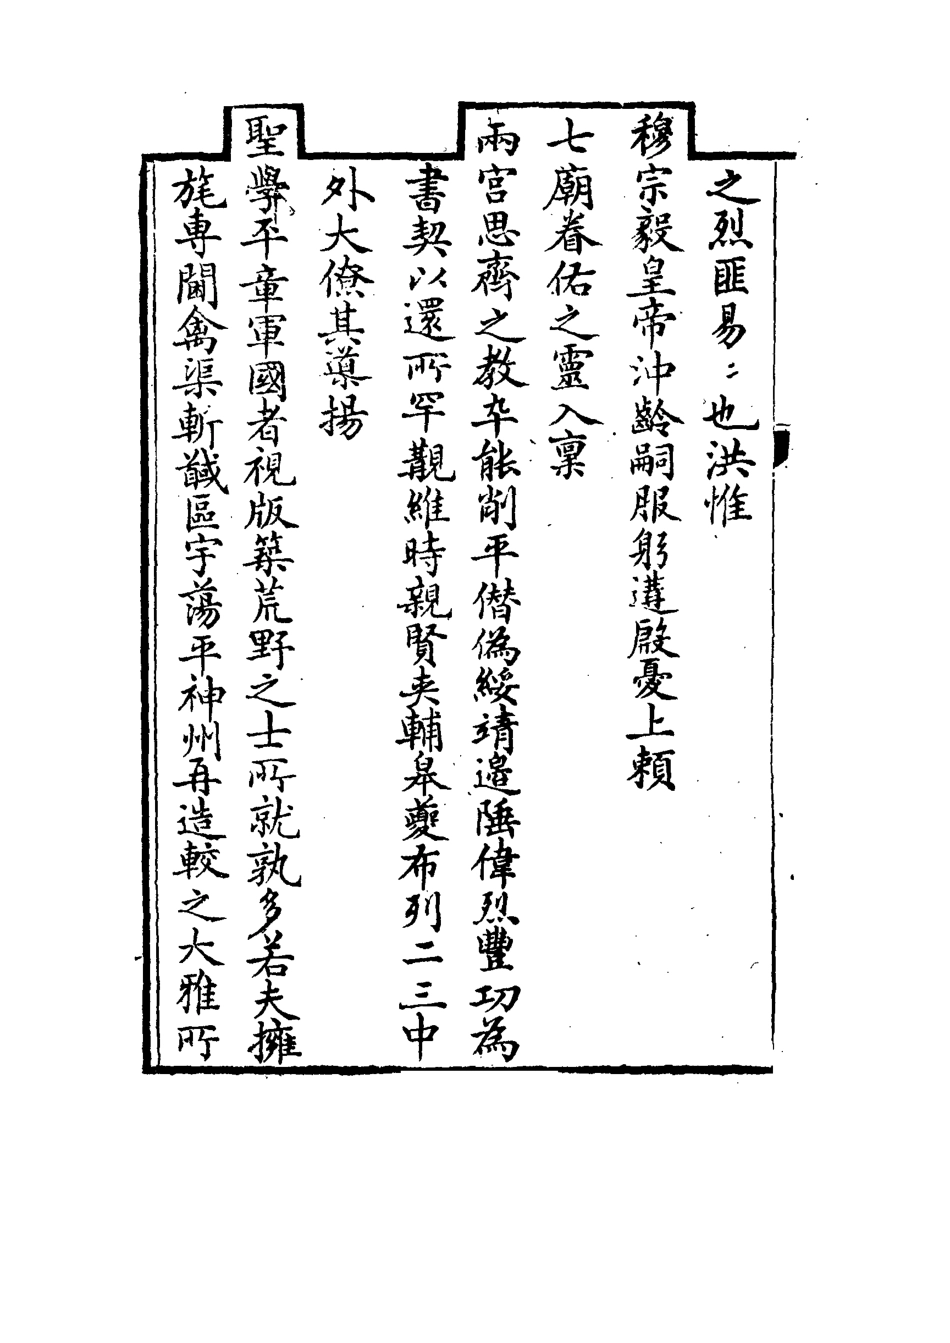 之烈匪易〻也洪惟
穆宗毅皇帝沖齡嗣服躬遘殷憂上賴
七廟眷佑之靈入稟
兩宮思齊之教卒能削平僭偽綏靖邊陲偉烈豐功為
書契以還所罕覯維時親賢夾輔皋夔布列二三中
外大僚其導揚
聖學平章軍國者視版築荒野之士所就孰多若夫擁
旄專閫禽渠斬馘區宇蕩平神州再造較之大雅所